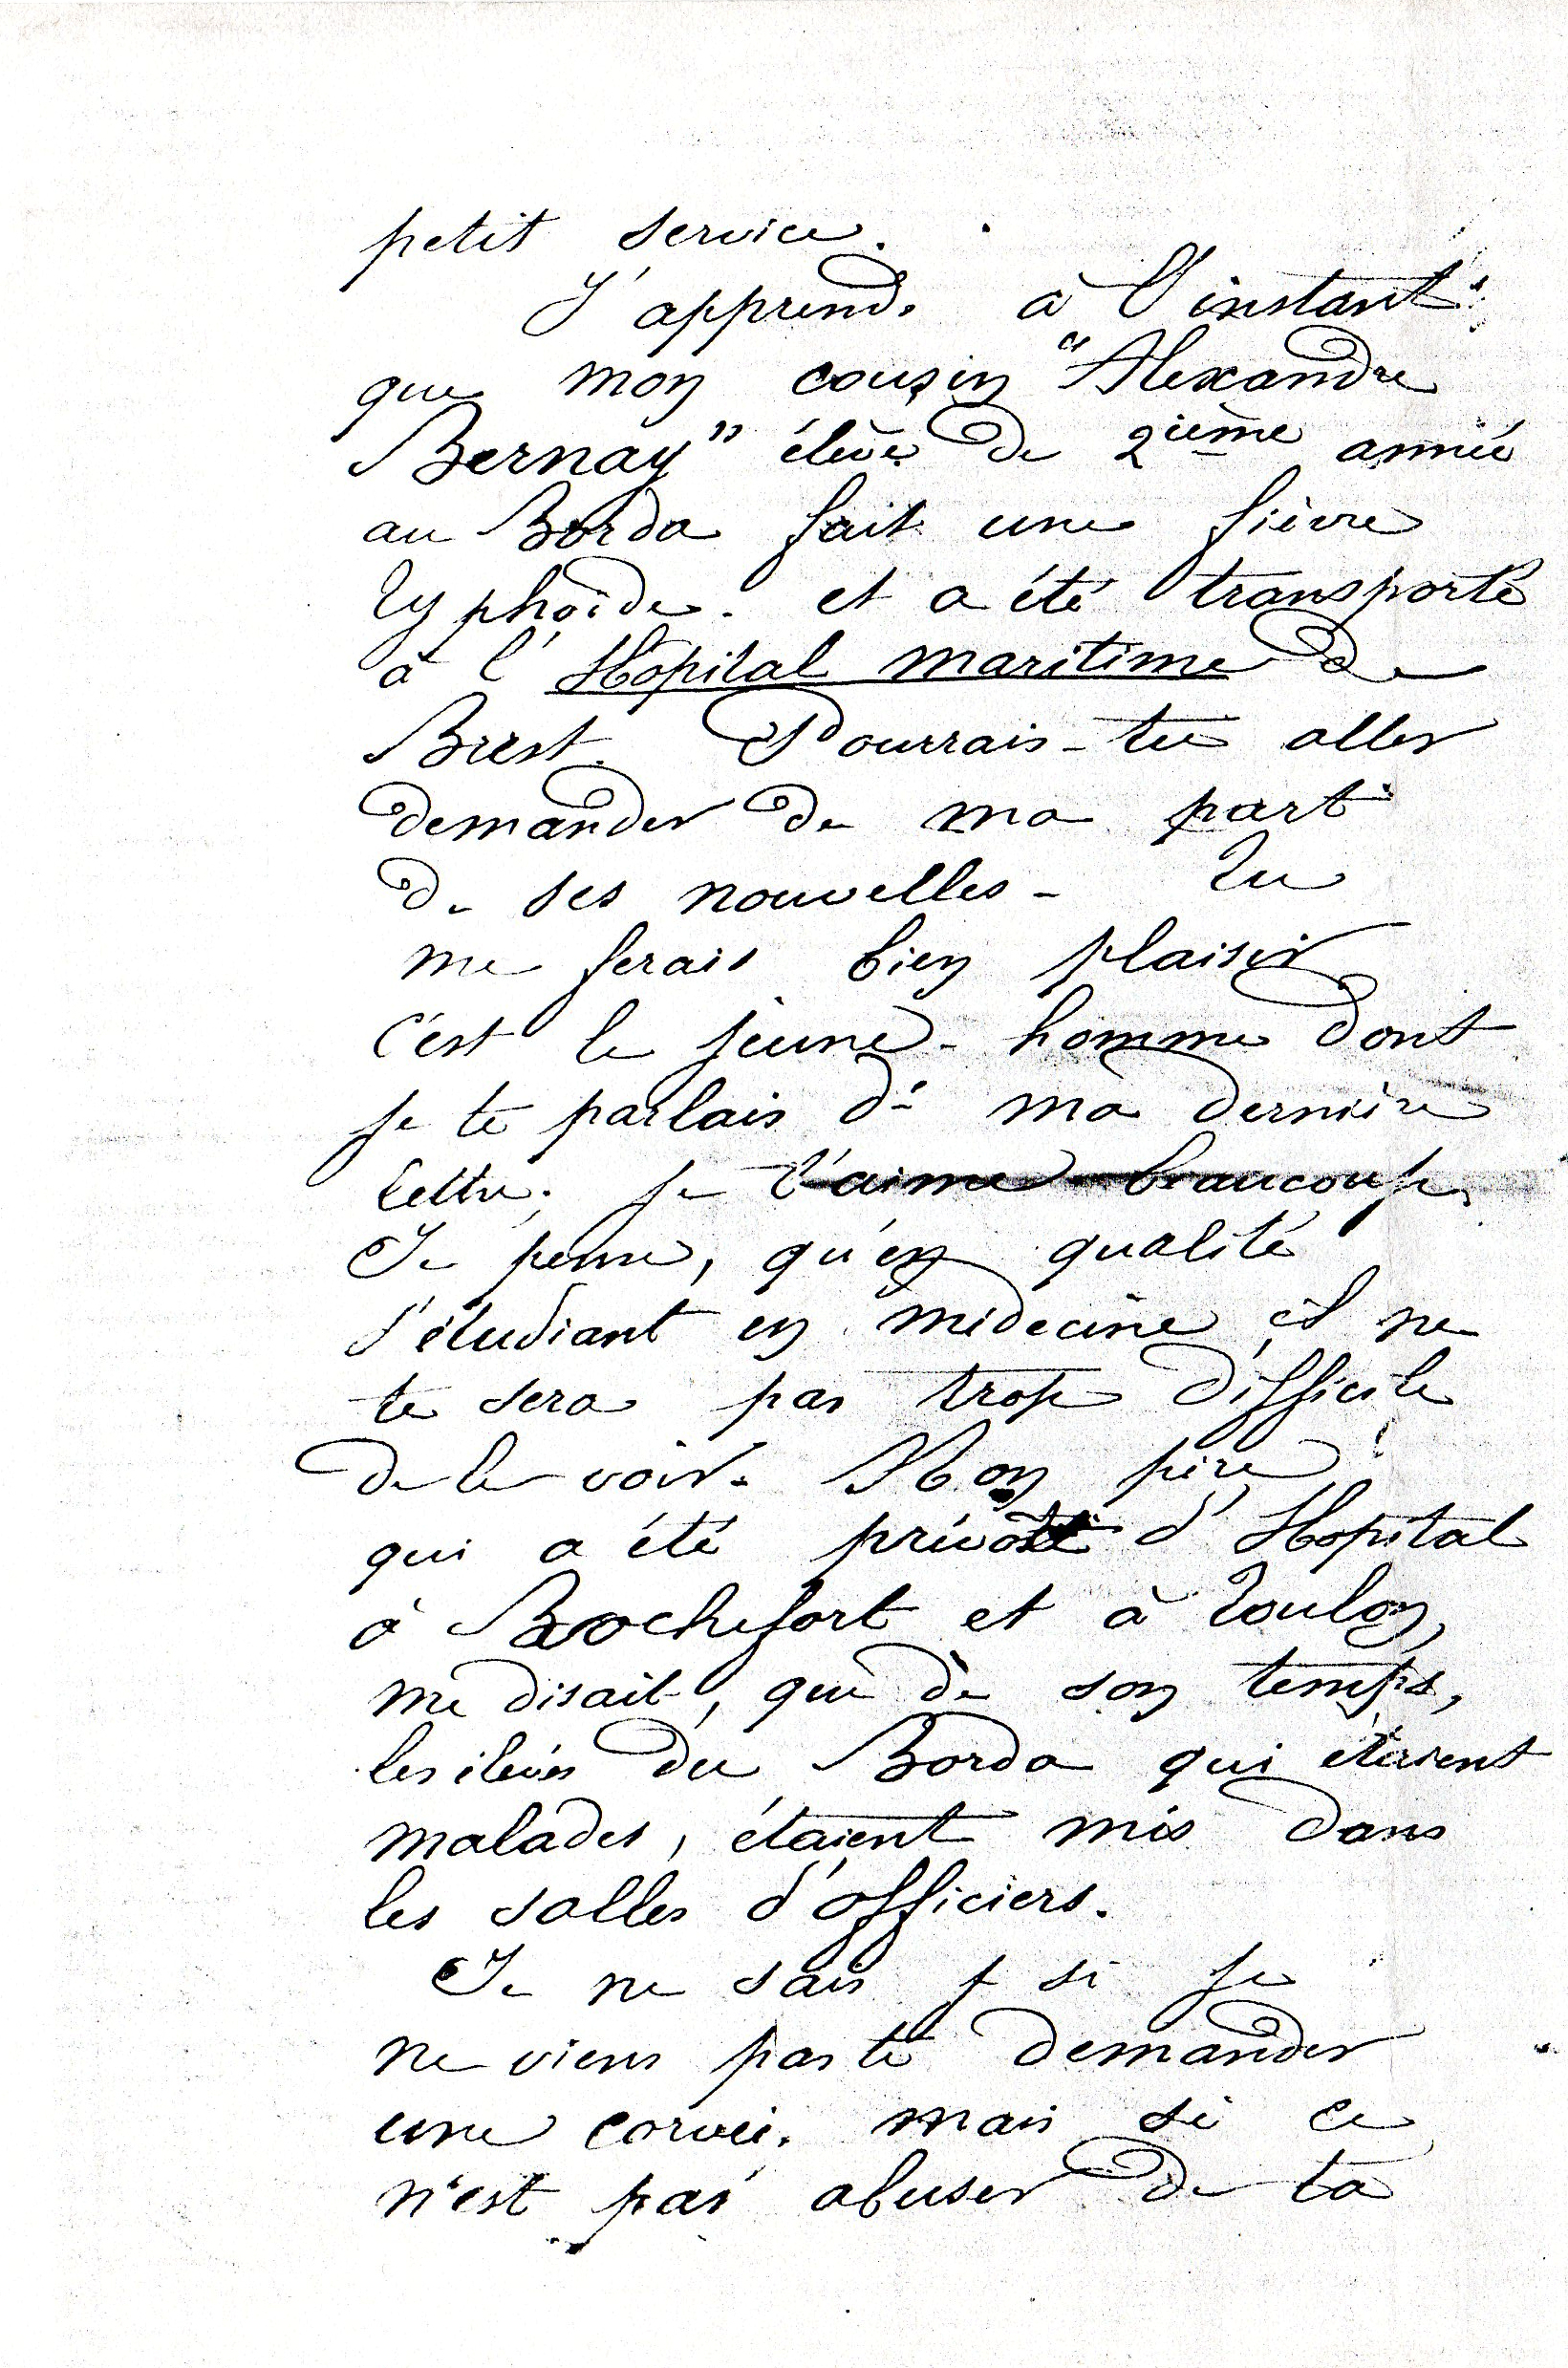 petit service.
J'apprends à l'instant
que mon cousin "Alexandre
Bernay" élève de 2ième année
au Borda fait une fièvre
typhoïde. et a été transporté
à l'Hôpital maritime de
Brest. Pourrais-tu aller
demander de ma part
de ses nouvelles - Tu
me ferais bien plaisir
c'est le jeune-homme dont
je te parlais ds ma dernière
lettre; je l'aime beaucoup.
Je pense, qu'en qualité
d'étudiant en médecine il ne
te sera pas trop difficile
de le voir. Mon père
qui a été prévôt d'Hôpital
à Rochefort et à Toulon,
me disait, que de son temps,
les élèves du Borda qui étaient
malades, étaient mis dans
les salles d'officiers.
Je ne sais si je
ne viens pas te demander
une corvée. mais si ce
n'est pas abuser de ta